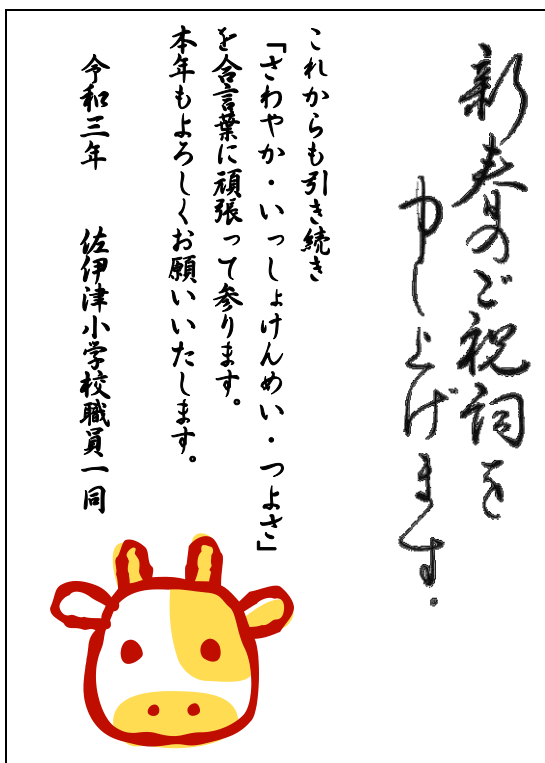 新春のご祝詞を
申し上げます.
これからも引き続き
「さわやか・いっしょけんめい・つよさ」
を合言葉に頑張って参ります。
本年もよろしくお願いいたします。
令和三年　佐伊津小学校職員一同